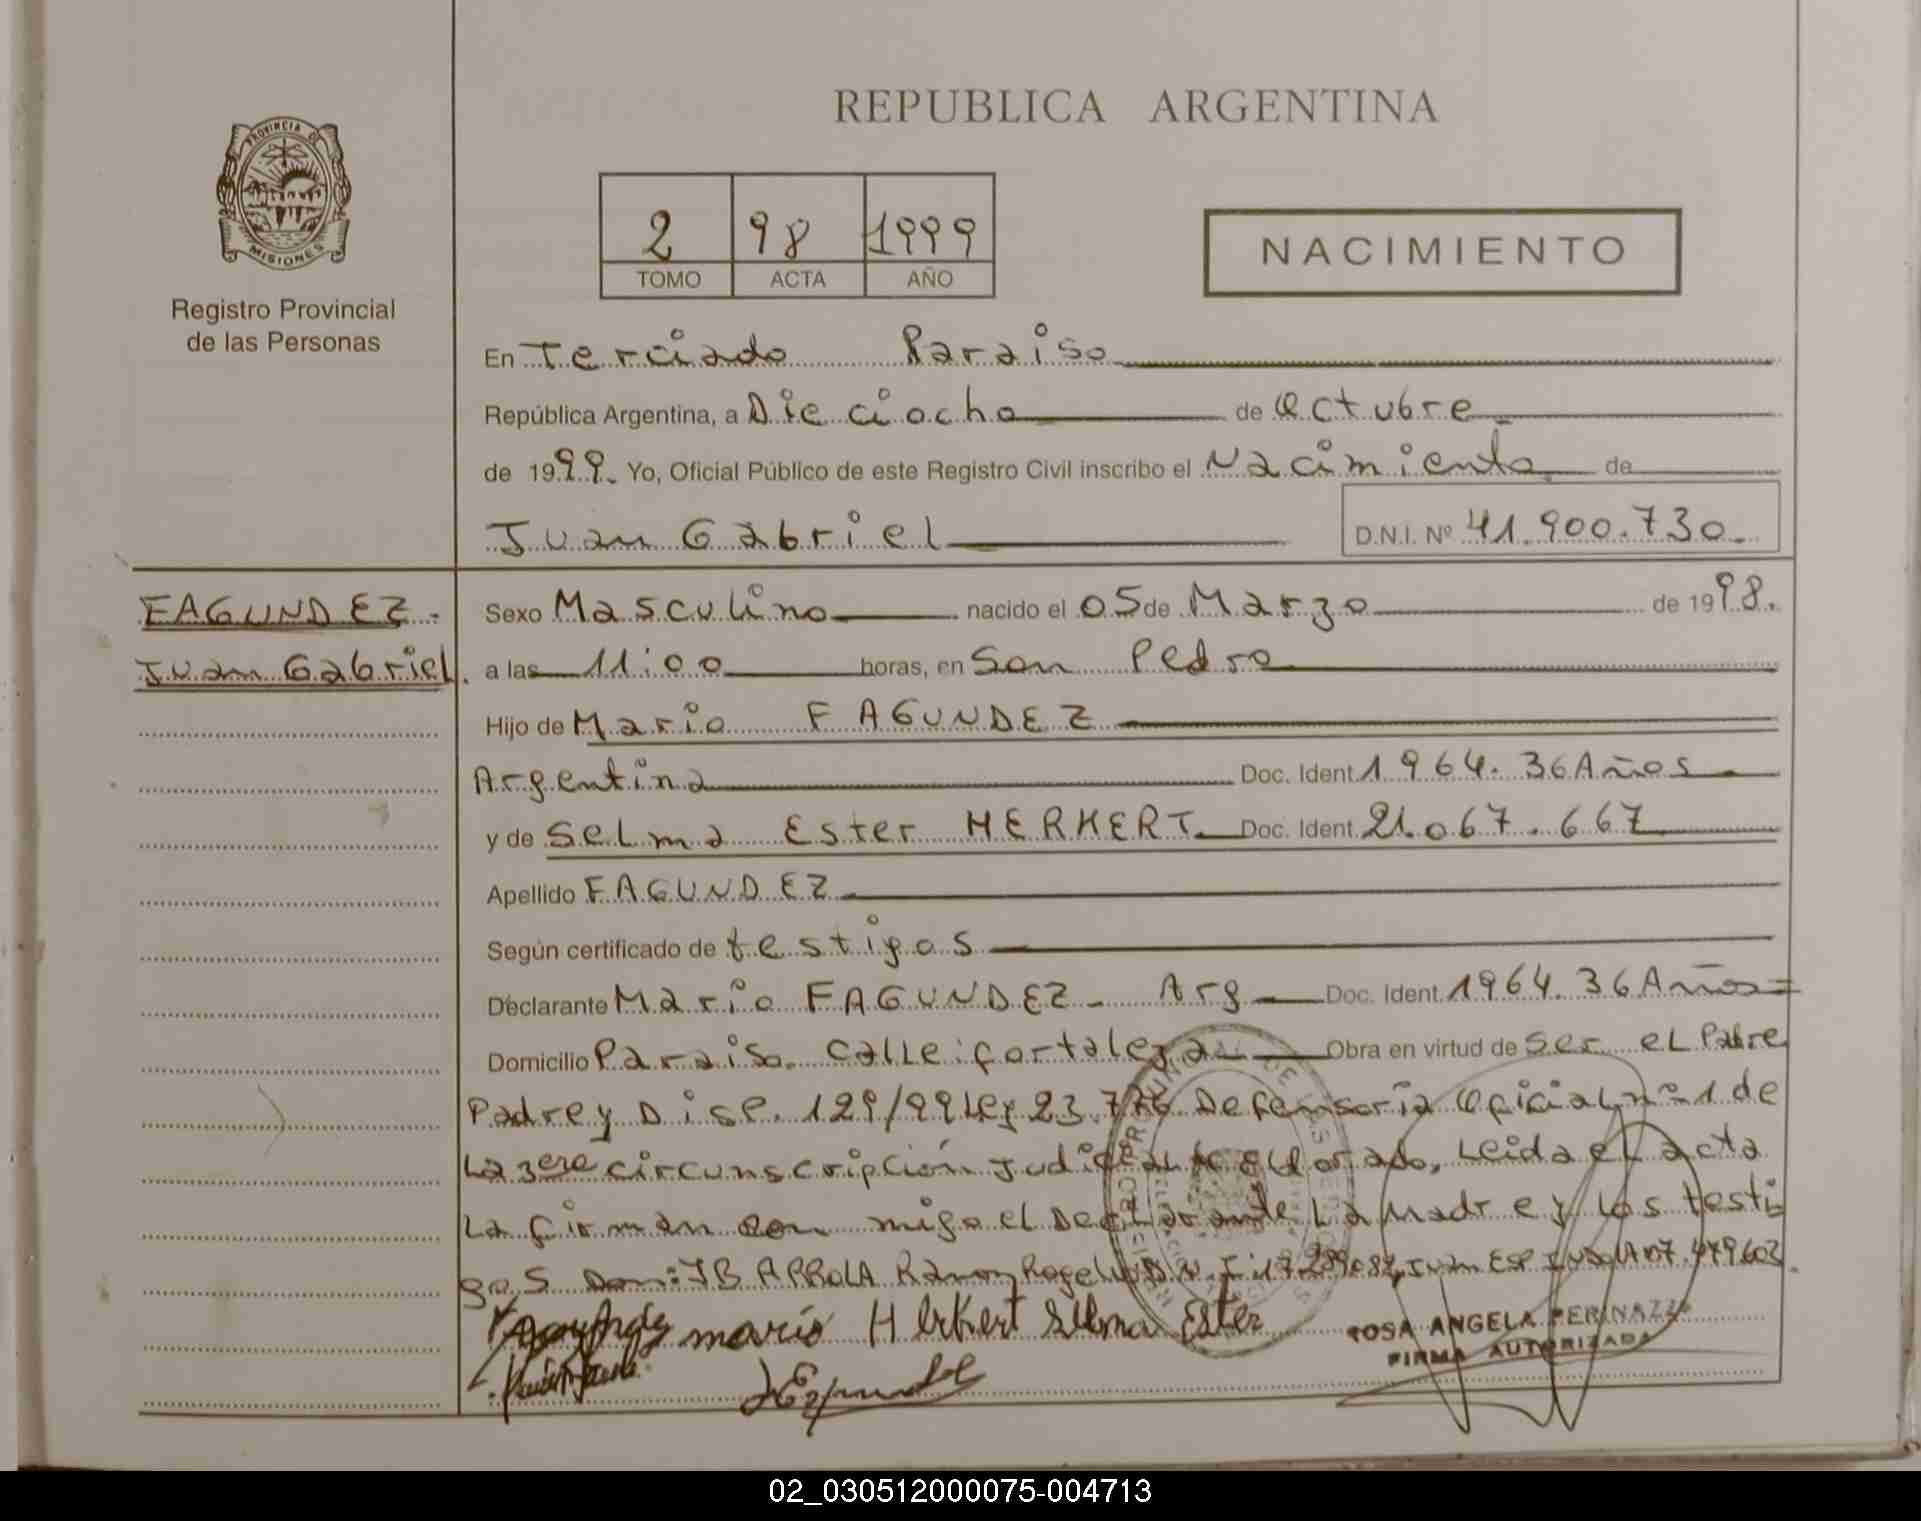 REPUBLICA ARGENTINA
PROVINCIA DE
MISIONES
Registro Provincial
de las Personas
2 98 1999
TOMO ACTA AÑO
NACIMIENTO
En Terciado Paraiso
República Argentina, a Dieciocho de Octubre
de 1999. Yo, Oficial Público de este Registro Civil inscribo el Nacimiento de
Juan Gabriel D.N.I. Nº 41.900.730.
FAGUNDEZ.
Juan Gabriel.
Sexo Masculino nacido el 05 de Marzo de 1998.
a las 11:00 horas, en San Pedro
Hijo de Mario FAGUNDEZ
Argentina Doc. Ident. 1964. 36 Años
y de Selma Ester HERKERT. Doc. Ident. 21.067.667
Apellido FAGUNDEZ
Según certificado de testigos
Declarante Mario FAGUNDEZ - Arg Doc. Ident. 1964. 36 Años
Domicilio Paraiso. calle: fortaleza Obra en virtud de ser el Padre
Padre y Disp. 129/99 Ley 23.776 Defensoría Oficial nº 1 de
La 3era circunscripción Judicial de Eldorado, Leida el acta
La firman con migo el Declarante La Madre y los testi
gos Don: Ramon Rogelio D.N.I: Juan ESPINDOLA M7.479.602.
mario Herkert Selma Ester
ROSA ANGELA PERINAZZO
FIRMA AUTORIZADA
02_030512000075-004713